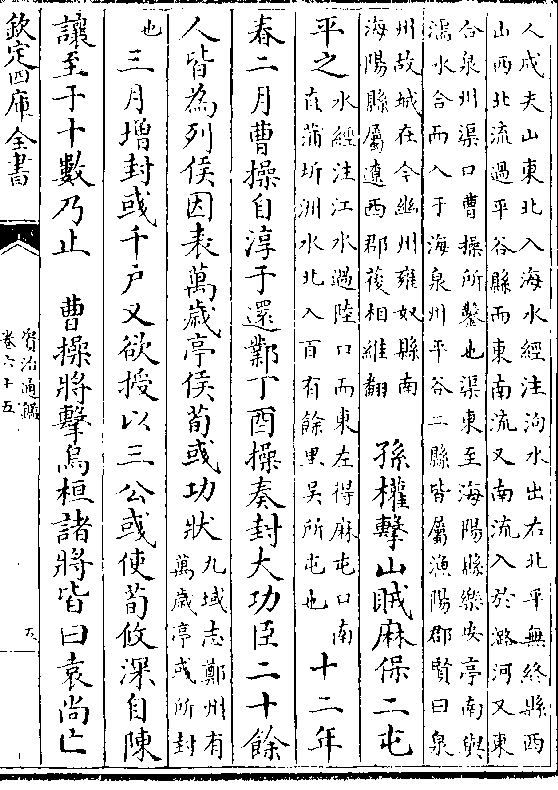 人戍夫山東北入海水經注泃水出右北平無終縣西
山西北流過平谷縣而東南流又南流入於潞河又東
合泉州渠口曹操所鑿也渠東至海陽縣樂安亭南與
濡水合而入于海泉州平谷二縣皆屬漁陽郡賢曰泉
州故城在今幽州雍奴縣南
海陽縣屬遼西郡複相維翻
孫權擊山賊麻保二屯
平之
水經注江水過陸口而東左得麻屯口南
直蒲圻洲水北入百有餘里吳所屯也
十二年
春二月曹操自淳于還鄴丁酉操奏封大功臣二十餘
人皆為列侯因表萬歲亭侯荀彧功狀
九域志鄭州有
萬歲亭彧所封
也
三月增封彧千户又欲授以三公彧使荀攸深自陳
讓至于十數乃止 曹操將擊烏桓諸將皆曰袁尚亡
欽定四庫全書
資治通鑑
卷六十五